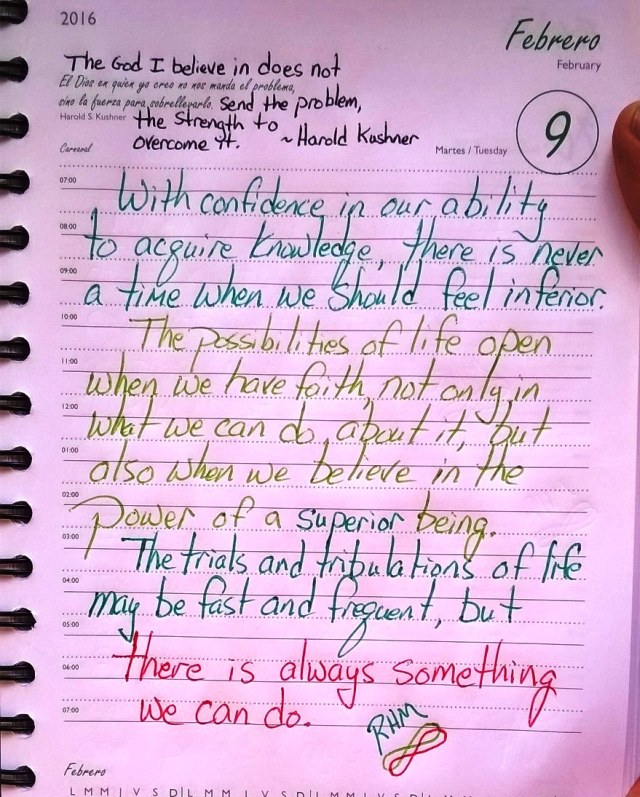 2016
Febrero
February
The God I believe in does not
El Dios en quien yo creo no nos manda el problema,
sino la fuerza para sobrellevarlo. send the problem,
Harold S. Kushner the strength to
overcome it. ~Harold Kushner
Carnaval
Martes / Tuesday
9
07:00
With confidence in our ability
08:00
to acquire knowledge, there is never
09:00
a time when we should feel inferior.
10:00
The possibilities of life open
11:00
when we have faith, not only in
12:00
what we can do, about it, but
01:00
also when we believe in the
02:00
power of a superior being.
03:00
The trials and tribulations of life
04:00
may be fast and frequent, but
05:00
there is always something
06:00
we can do.
07:00
RHM
Febrero
L M M J V S D|L M M J V S D|L M M J V S D|L